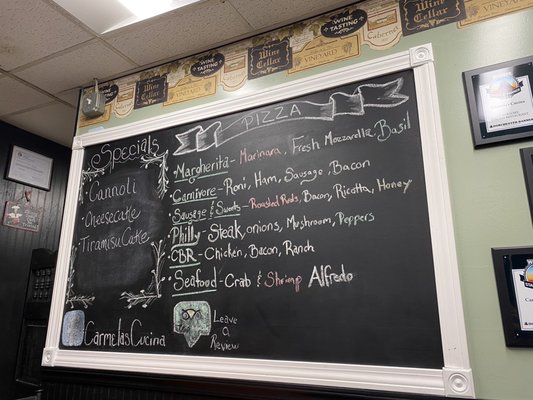 WINE TASTING
Wine Cellar
VINEYARD
WINE TASTING
Wine Cellar
VINEYARD
WINE TASTING
Wine Cellar
Specials
Cannoli
Cheesecake
Tiramisu Cake
CarmelasCucina
PIZZA
Margherita - Marinara, Fresh Mozzarella, Basil
Carnivore - Roni, Ham, Sausage, Bacon
Sausage & Sweets - Roasted Reds, Bacon, Ricotta, Honey
Philly - Steak, onions, Mushroom, Peppers
CBR - Chicken, Bacon, Ranch
Seafood - Crab & Shrimp Alfredo
Leave
a
Review